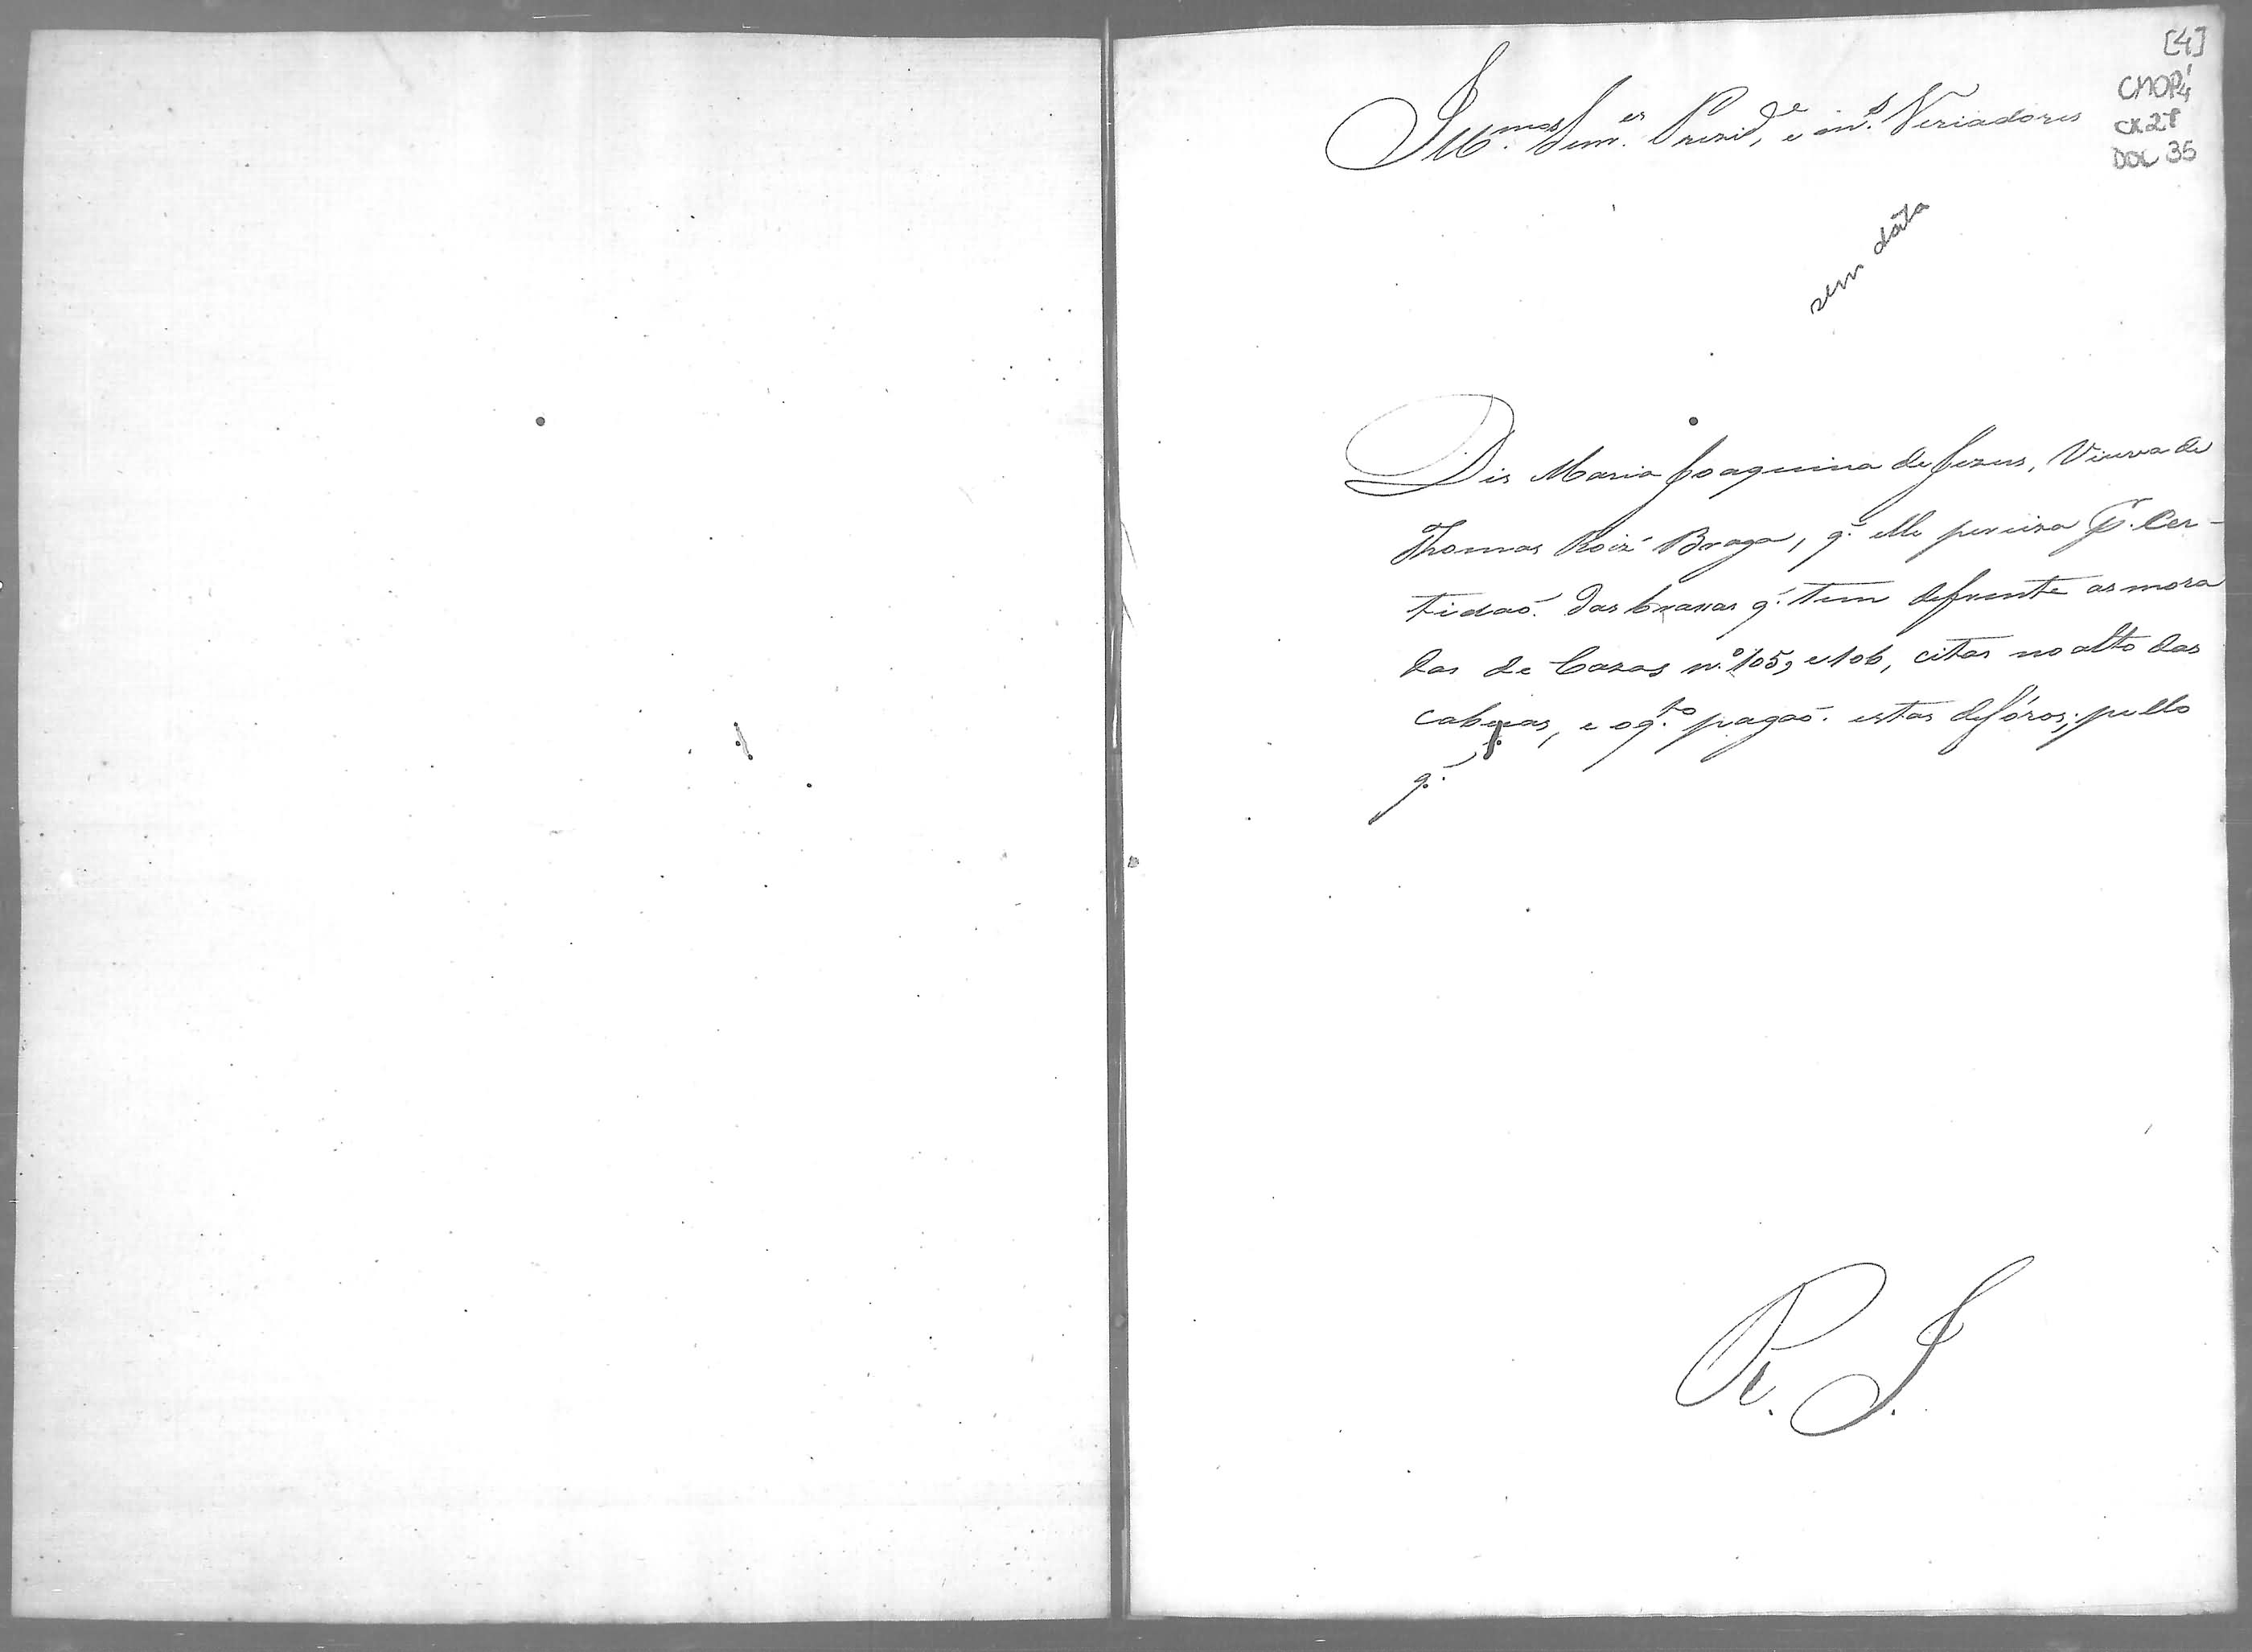 [4]
CMOP
CX 27
DOC 35
Ill.mos Senr.es Prezid.e, e m.s Veriadores
sem data
Dis Maria Joaquina de Jezus, Viuva de
Thomas Roiz' Braga, q.' elle preciza p.r Cer-
tidaõ. das braças q.' tem defrente as mora
das de Cazas n.o 105, e 106, citas no alto das
cabeças, e o q.to pagaõ. estas defóros; pello
q.'
R. J.